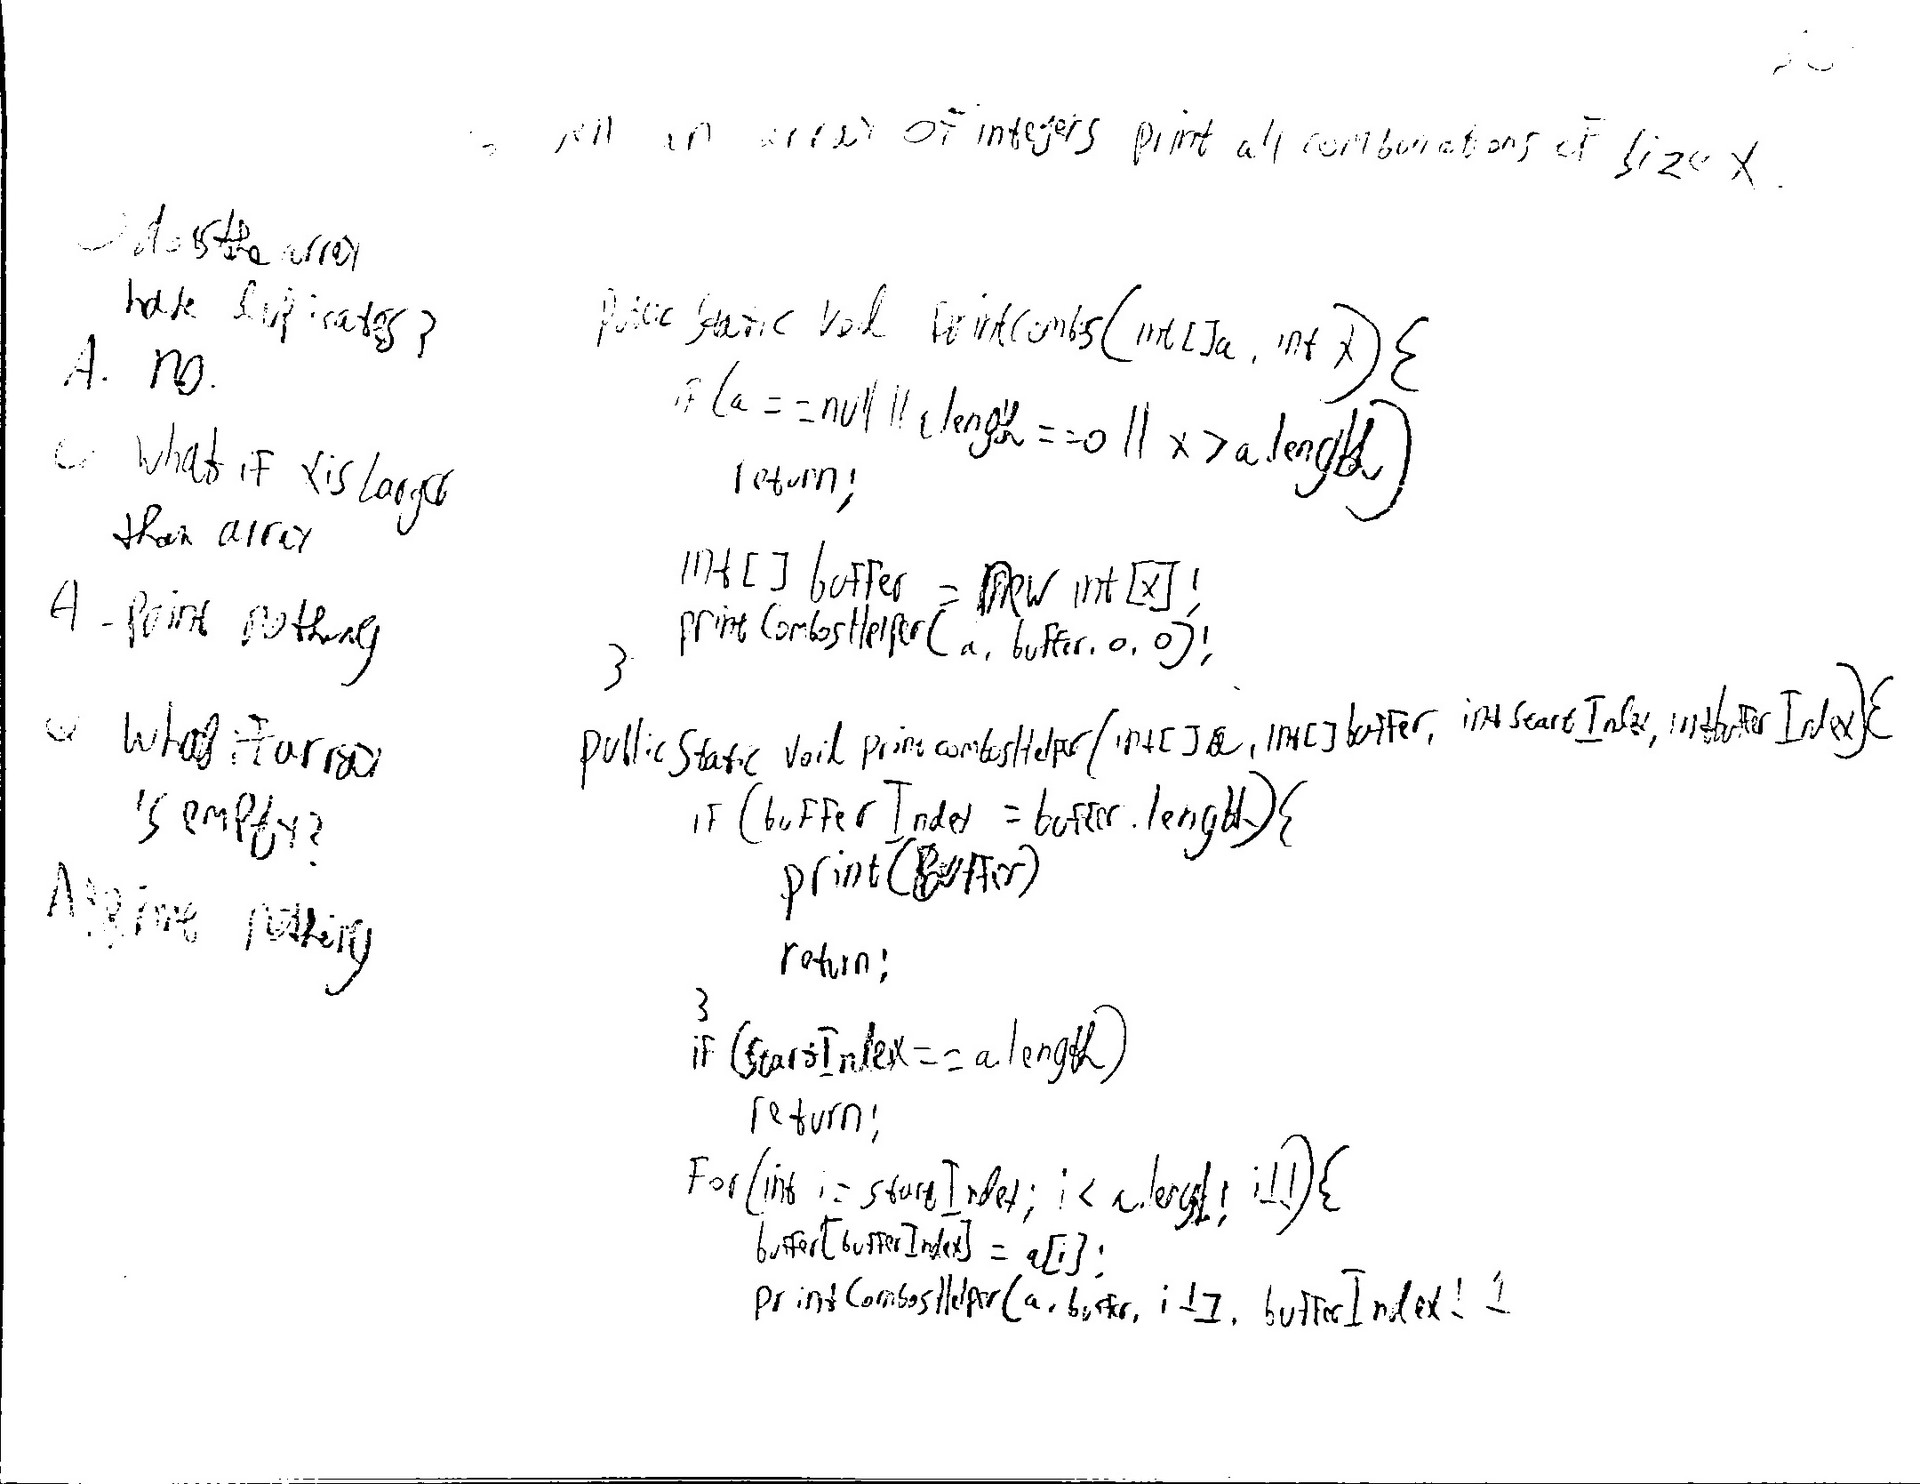 an array of integers print all combinations of size x.
does the array
have duplicates?
A. no.
What if x is larger
than array
A - print nothing
What if array
is empty?
A. print nothing
public static void printCombos(int[]a, int x){
if (a == null || a.length == 0 || x > a.length)
return;
int[] buffer = new int[x];
printCombosHelper(a, buffer, 0, 0);
}
public static void printCombosHelper(int[] a, int[] buffer, int startIndex, int bufferIndex){
if (bufferIndex = buffer.length){
print(buffer)
return;
}
if (startIndex == a.length)
return;
for(int i = startIndex; i < a.length; i++){
buffer[bufferIndex] = a[i];
printCombosHelper(a, buffer, i+1, bufferIndex+1